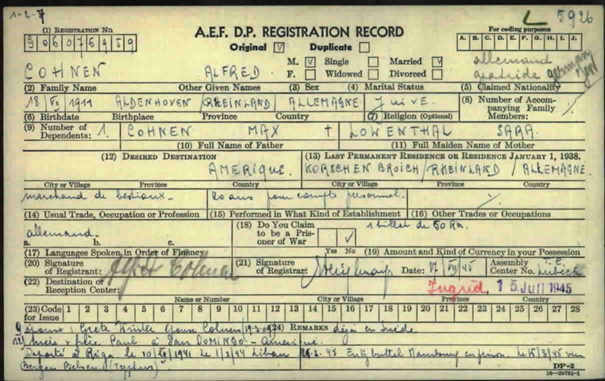 1-2-7
L 5926
(1) REGISTRATION NO.
A.E.F. D.P. REGISTRATION RECORD
For coding purposes
Original ☑ Duplicate ☐
A. B. C. D. E. F. G. H. I. J.
M. ☑ Single ☐ Married ☑
F. ☐ Widowed ☐ Divorced ☐
COHNEN ALFRED. allemand
(2) Family Name Other Given Names (3) Sex (4) Marital Status (5) Claimed Nationality
18/XII/1911 ALDENHOVEN /RHEINLAND/ ALLEMAGNE Juive.
(6) Birthdate Birthplace Province Country (7) Religion (Optional) (8) Number of Accompanying Family Members:
(9) Number of Dependents: 1. COHNEN MAX + LOWENTHAL SARA.
(10) Full Name of Father (11) Full Maiden Name of Mother
(12) DESIRED DESTINATION (13) LAST PERMANENT RESIDENCE OR RESIDENCE JANUARY 1, 1938.
AMERIQUE. KORSCHENBROICH /RHEINLAND/ ALLEMAGNE.
City or Village Province Country City or Village Province Country
marchand de bestiaux. 20 ans pour compte personnel.
(14) Usual Trade, Occupation or Profession (15) Performed in What Kind of Establishment (16) Other Trades or Occupations
allemand. (18) Do You Claim to be a Prisoner of War ☐ ☑ 1 billet de 50 Rm.
a. b. c. Yes No
(17) Languages Spoken in Order of Fluency (19) Amount and Kind of Currency in your Possession
(20) Signature of Registrant: Alfred Cohnen (21) Signature of Registrar: Date: /VII/45 Assembly Center No. Lubeck
(22) Destination of Reception Center: Ingrid 15 JUIL 1945
Name or Number City or Village Province Country
(23) Code for Issue 1 2 3 4 5 6 7 8 9 10 11 12 13 14 15 16 17 18 19 20 21 22 23 24 25 26 27 28
épouse: Grete (24) REMARKS déjà en Suède
Paul à SAN DOMINGO - Amérique.
déporté à Riga le 10/XII/1941 Le 1/3/44 Libau Hambourg en prison. Le 15/3/45
Bergen Belsen (Typhus)
DP-2
16-39781-1